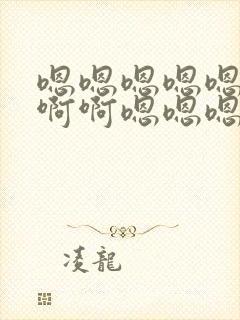 嗯嗯嗯嗯嗯
啊啊嗯嗯嗯
凌龍